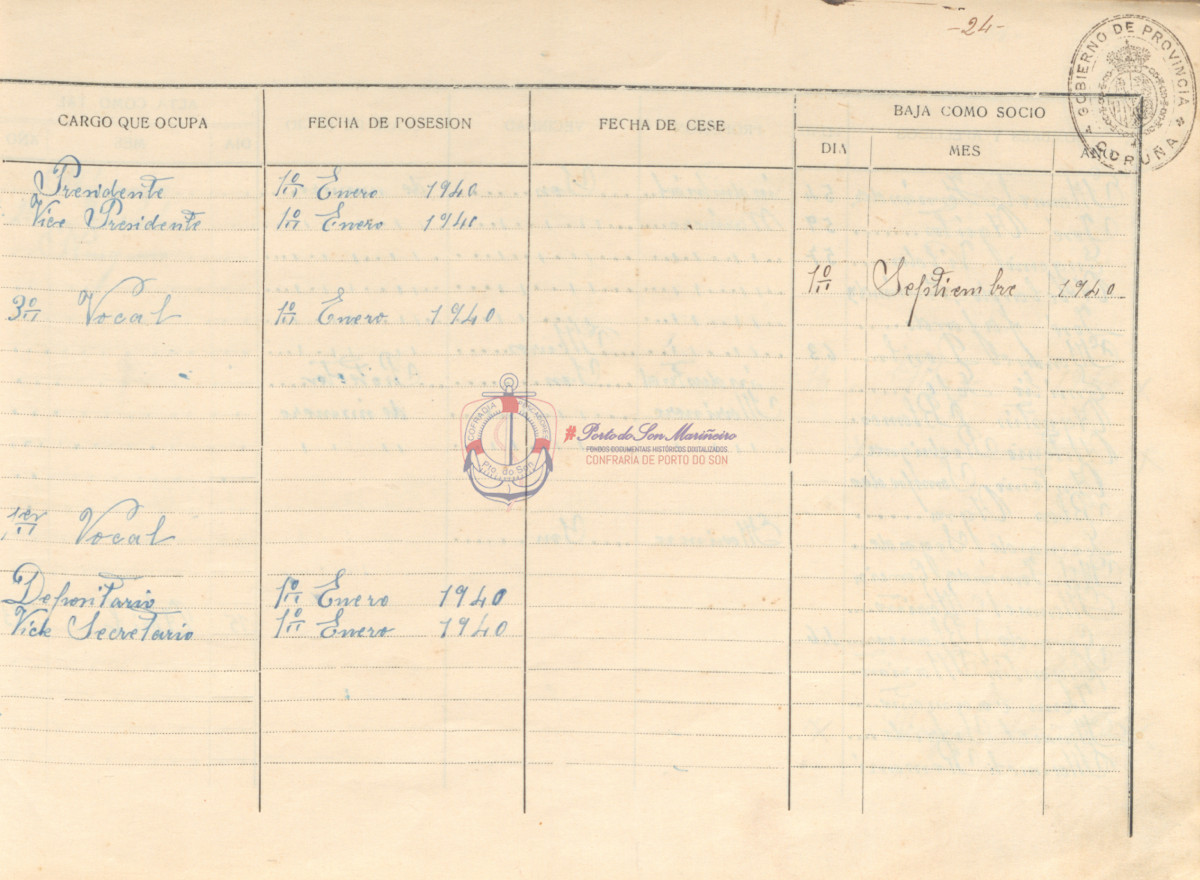 -24-
GOBIERNO DE PROVINCIA
CORUÑA
CARGO QUE OCUPA FECHA DE POSESION FECHA DE CESE BAJA COMO SOCIO
DIA MES AÑO
Presidente 1º Enero 1940
Vice Presidente 1º Enero 1940
1º Septiembre 1940
3º Vocal 1º Enero 1940
COFRADIA PESCADORES
Pto. do Son
#Porto do Son Mariñeiro
FONDOS DOCUMENTAIS HISTÓRICOS DIXITALIZADOS
CONFRARÍA DE PORTO DO SON
1er Vocal
Depositario 1º Enero 1940
Vice Secretario 1º Enero 1940